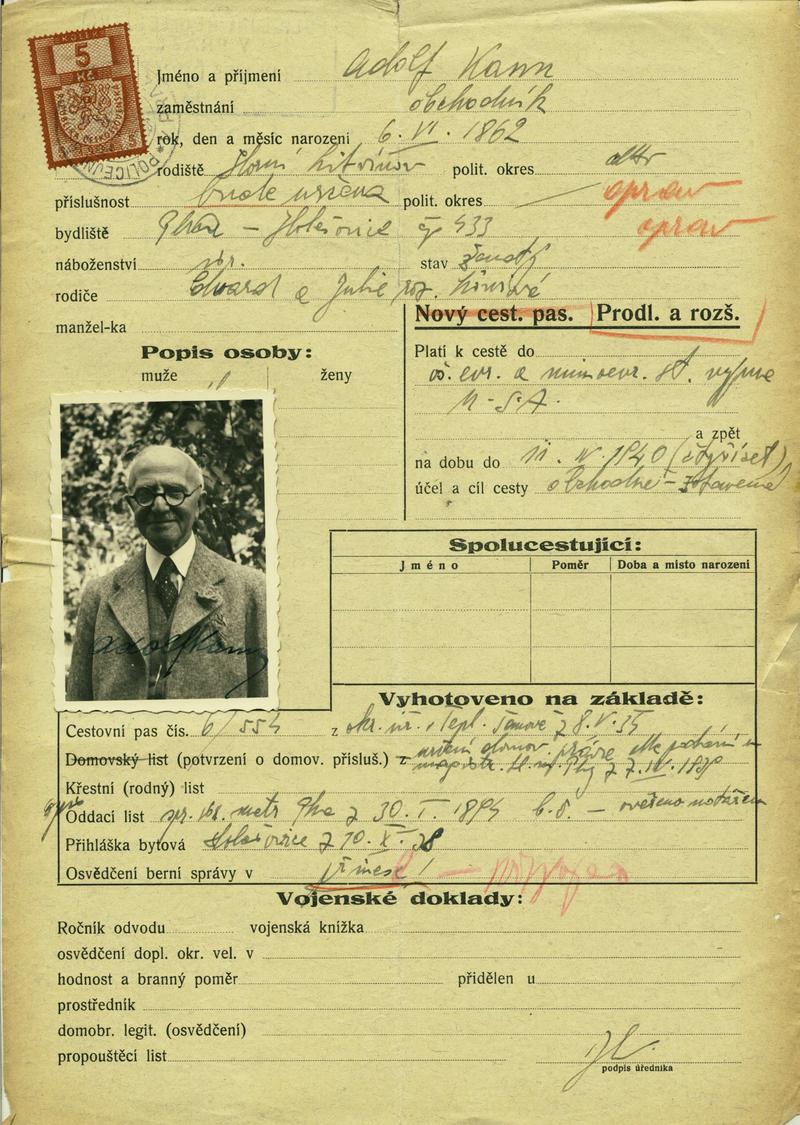 KOLEK
5
Kč
Jméno a příjmení Adolf Kann
zaměstnání obchodník
rok, den a měsíc narození 6. VI. 1862
rodiště Horní Litvínov polit. okres
příslušnost bude určena polit. okres oprav
bydliště Praha - Holešovice čp 433 oprav
náboženství isr. stav ženatý
rodiče Eduard a Julie roz.
manžel-ka
Nový cest. pas. Prodl. a rozš.
Popis osoby:
muže ženy
Platí k cestě do
vš. evr. a mimoevr. st. vyjma
U-S.A.
a zpět
na dobu do 11. IV. 1940 (čtyřicet)
účel a cíl cesty obchodně -
Adolf Kann
Spolucestující:
Jméno Poměr Doba a místo narození
Vyhotoveno na základě:
Cestovní pas čís. 6/554 z okr. úř. v Tepl. Šanově z 8. V. 35
Domovský list (potvrzení o domov. přísluš.) z určení domov. práva dle
magistr. hl. m. Phy z 7. IV.
Křestní (rodný) list
Oddací list isr. matr Pha z 30. I. 1894 - ověřeno notářem
Přihláška bytová Holešovice z 10. X. 38
Osvědčení berní správy v
Vojenské doklady:
Ročník odvodu vojenská knížka
osvědčení dopl. okr. vel. v
hodnost a branný poměr přidělen u
prostředník
domobr. legit. (osvědčení)
propouštěcí list
podpis úředníka